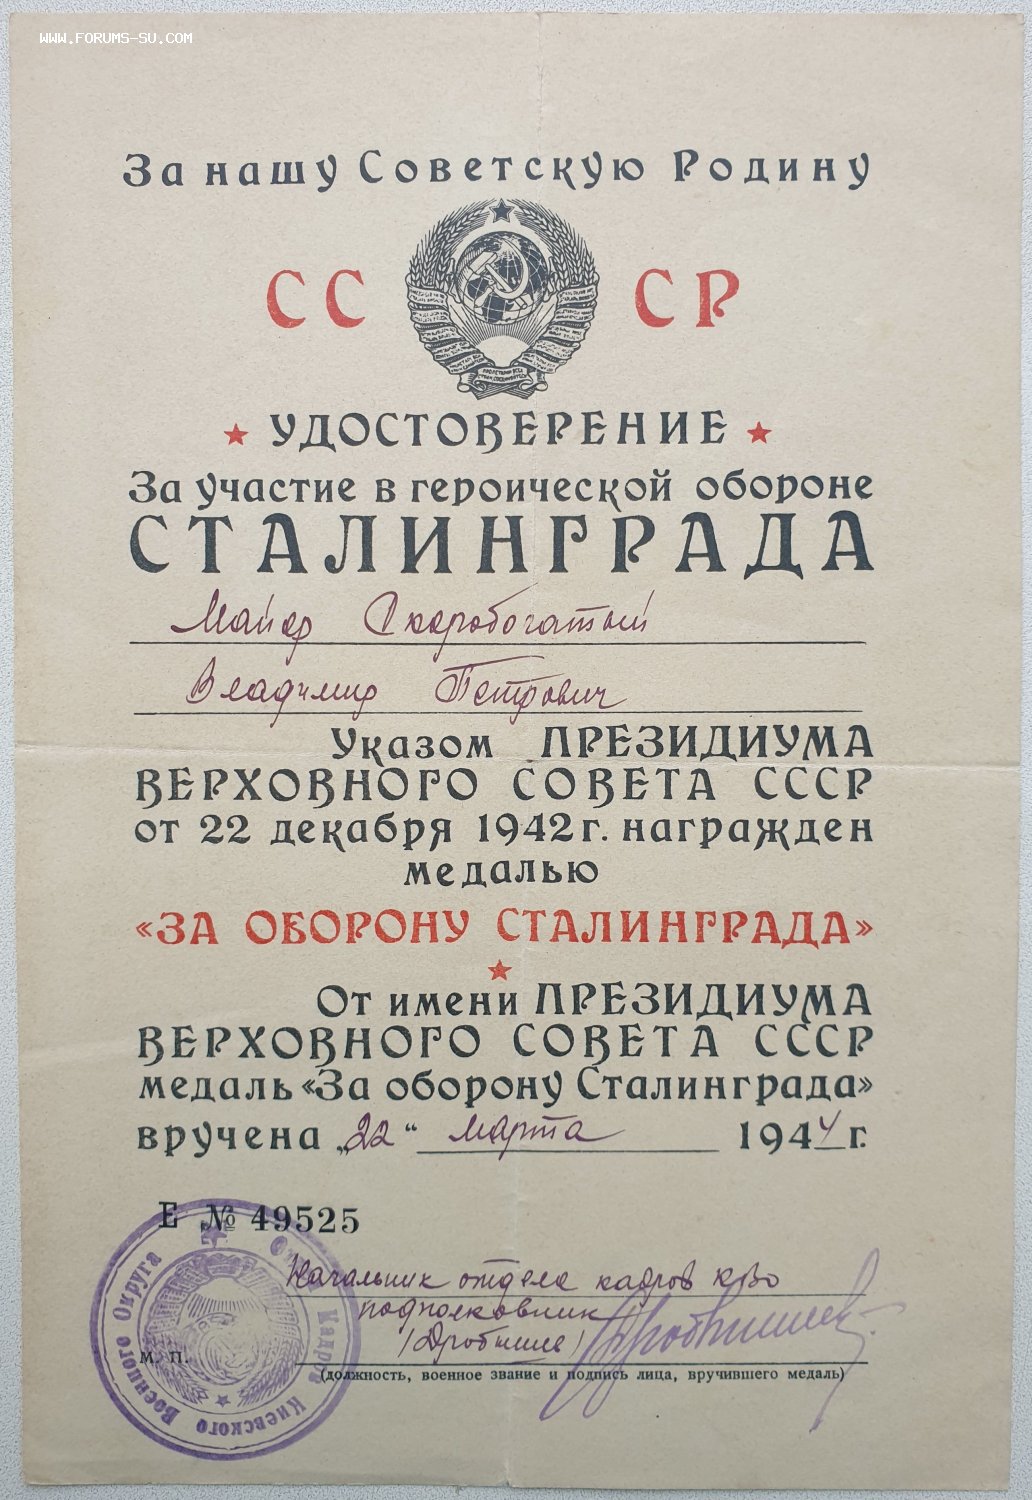 WWW.FORUMS-SU.COM
За нашу Советскую Родину
СС СР
УДОСТОВЕРЕНИЕ
За участие в героической обороне
СТАЛИНГРАДА
Майор Скоробогатый
Владимир Петрович
Указом ПРЕЗИДИУМА
ВЕРХОВНОГО СОВЕТА СССР
от 22 декабря 1942 г. награжден
медалью
«ЗА ОБОРОНУ СТАЛИНГРАДА»
От имени ПРЕЗИДИУМА
ВЕРХОВНОГО СОВЕТА СССР
медаль «За оборону Сталинграда»
вручена „22“ марта 1944 г.
Е № 49525
Начальник отдела кадров КВО
подполковник
м. п.
(должность, военное звание и подпись лица, вручившего медаль)
Кадров Киевского Военного Округа